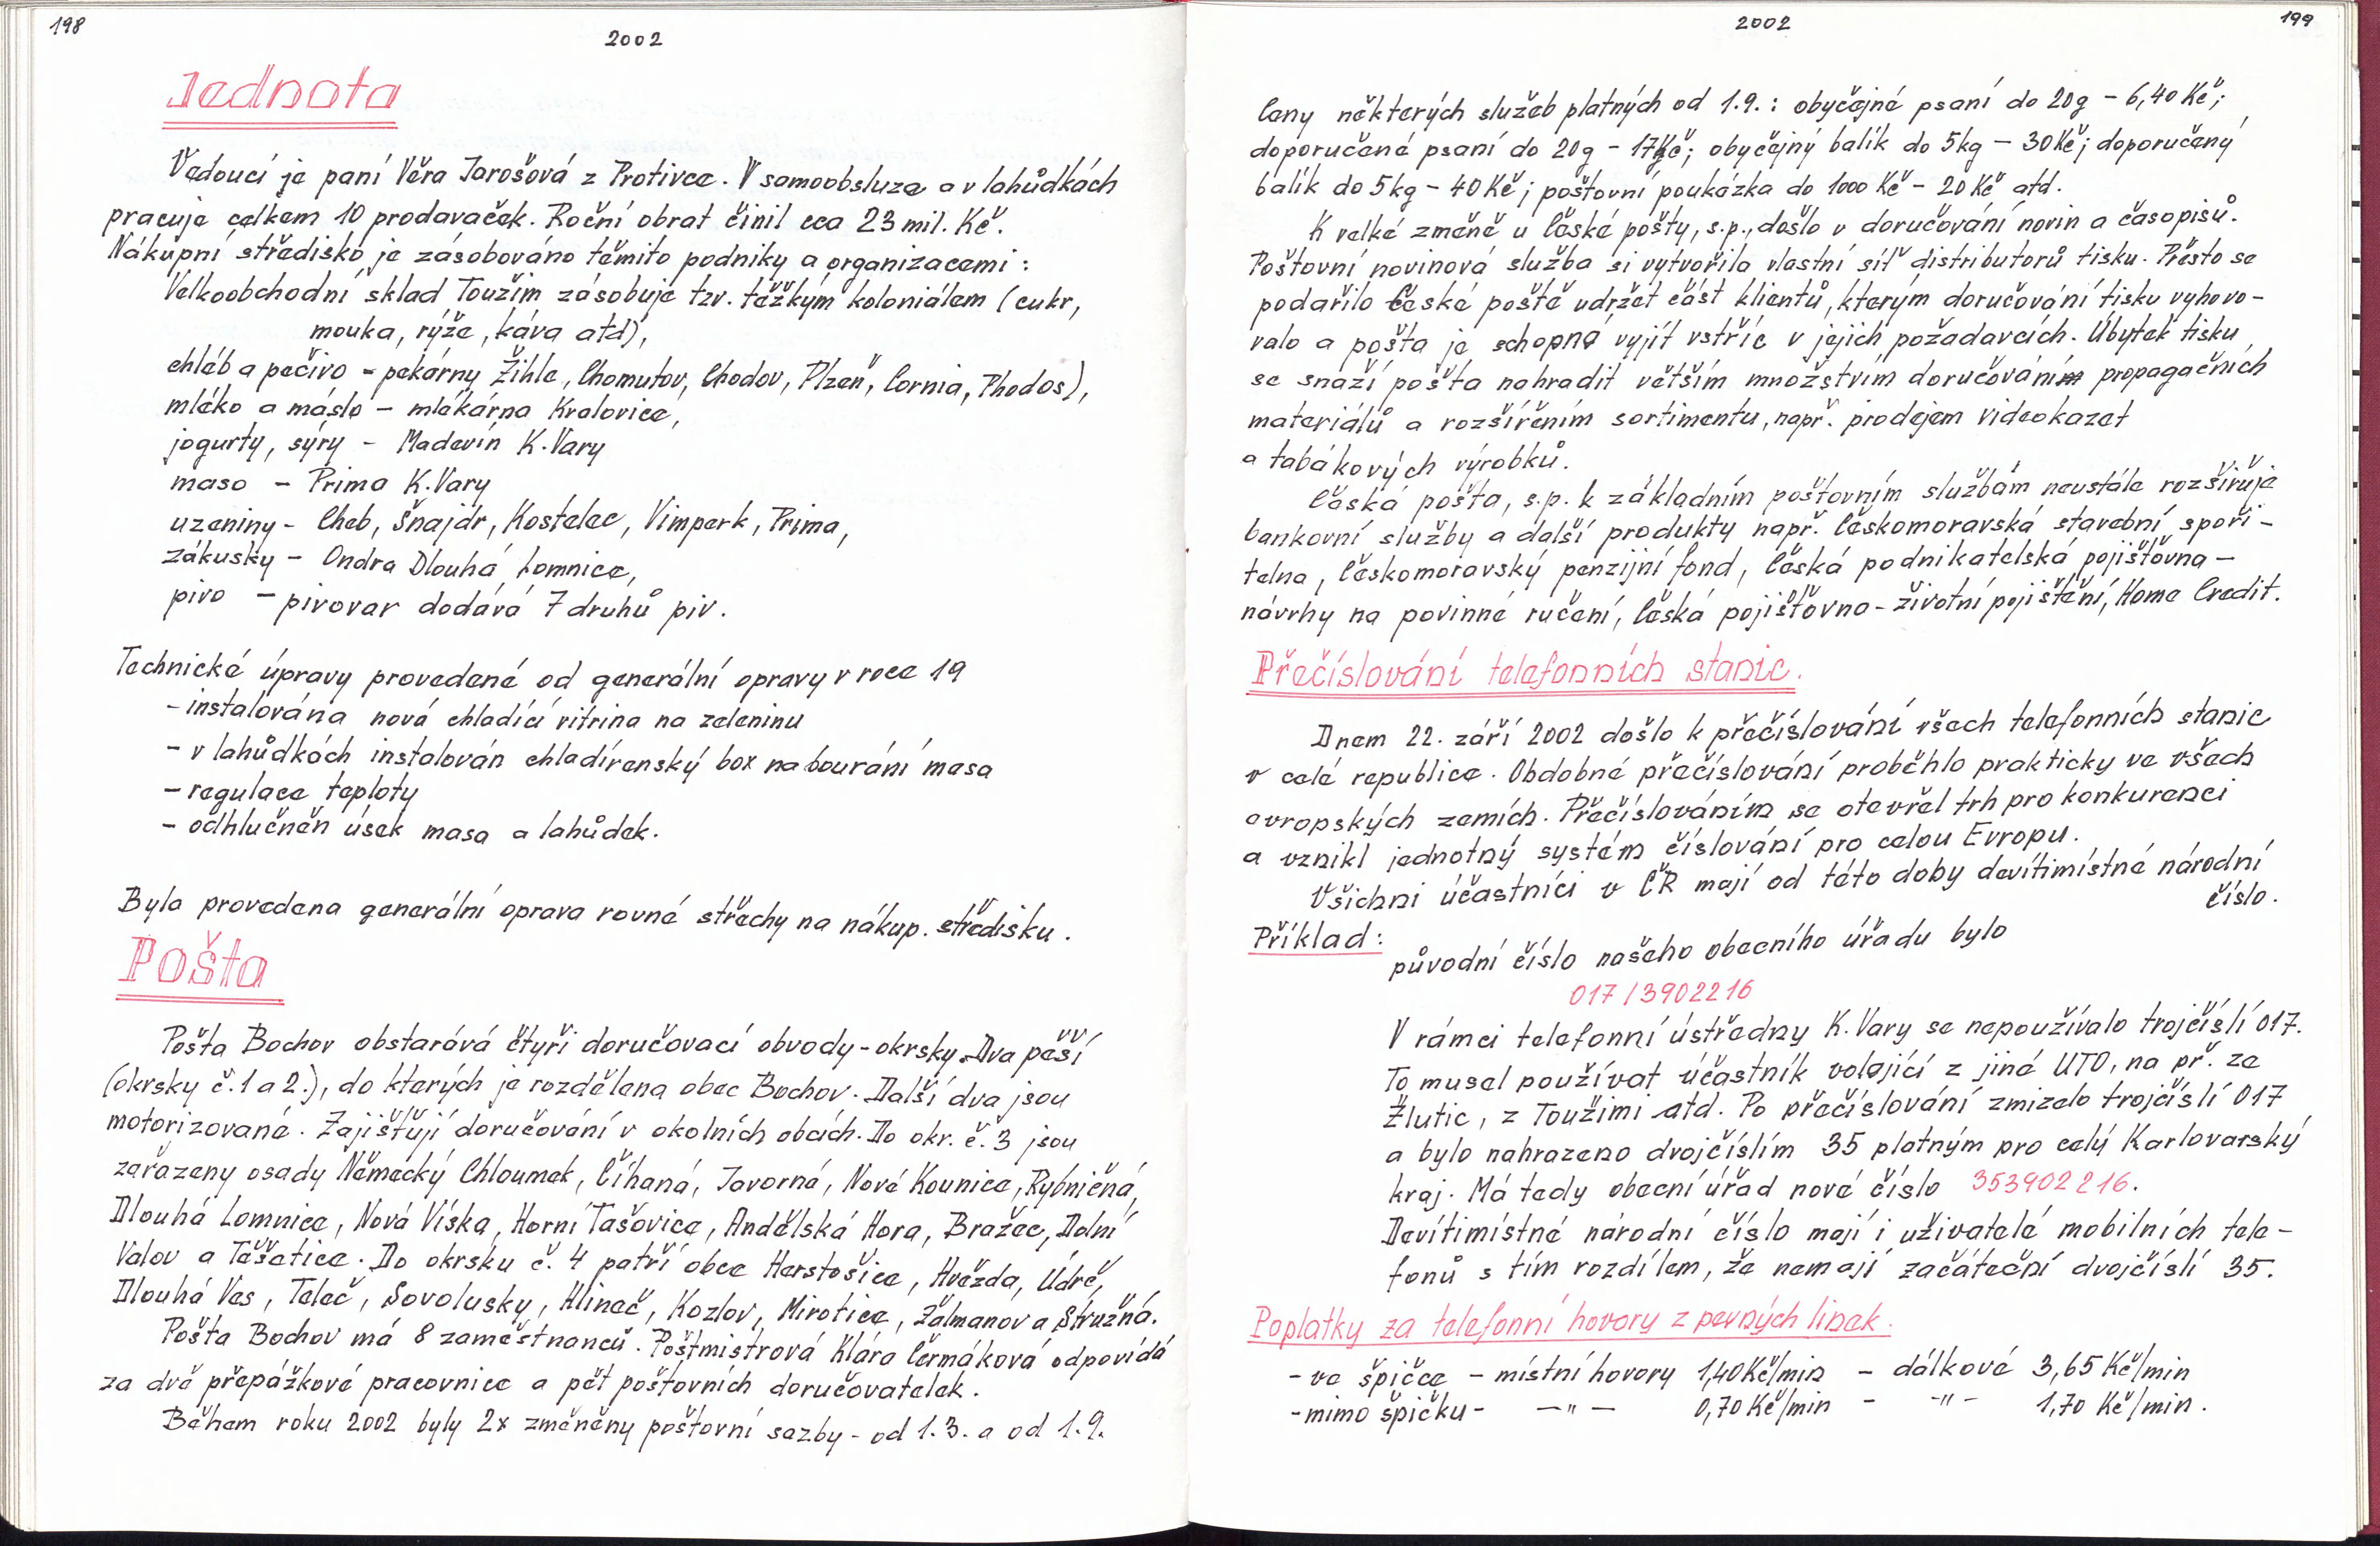 198
2002
Jednota
Vedoucí je paní Věra Jarošová z Protivce. V samoobsluze a v lahůdkách
pracuje celkem 10 prodavaček. Roční obrat činil cca 23 mil. Kč.
Nákupní středisko je zásobováno těmito podniky a organizacemi:
Velkoobchodní sklad Toužim zásobuje tzv. těžkým koloniálem (cukr,
mouka, rýže, káva atd),
chléb a pečivo - pekárny Žihle, Chomutov, Chodov, Plzeň, Cornia, Phodos),
mléko a máslo - mlékárna Kralovice,
jogurty, sýry - Madevin K. Vary
maso - Prima K. Vary
uzeniny - Cheb, Šnajdr, Kostelec, Vimperk, Prima,
zákusky - Ondra Dlouhá Lomnice,
pivo - pivovar dodává 7 druhů piv.
Technické úpravy provedené od generální opravy v roce 19
- instalována nová chladící vitrina na zeleninu
- v lahůdkách instalován chladírenský box na bourání masa
- regulace teploty
- odhlučněn úsek masa a lahůdek.
Byla provedena generální oprava rovné střechy na nákup. středisku.
Pošta
Pošta Bochov obstarává čtyři doručovací obvody - okrsky. Dva pěší
(okrsky č. 1 a 2.), do kterých je rozdělena obec Bochov. Další dva jsou
motorizované. Zajišťují doručování v okolních obcích. Do okr. č. 3 jsou
zařazeny osady Německý Chloumek, Číhaná, Javorná, Nové Kounice, Rybničná,
Dlouhá Lomnice, Nová Víska, Horní Tašovice, Andělská Hora, Bražec, Dolní
Valov a Těšetice. Do okrsku č. 4 patří obce Herstošice, Hvězda, Údrč,
Dlouhá Ves, Teleč, Sovolusky, Hlineč, Kozlov, Mirotice, Žalmanov a Stružná.
Pošta Bochov má 8 zaměstnanců. Poštmistrová Klára Čermáková odpovídá
za dvě přepážkové pracovnice a pět poštovních doručovatelek.
Během roku 2002 byly 2x změněny poštovní sazby - od 1.3. a od 1.9.
2002
199
Ceny některých služeb platných od 1.9.: obyčejné psaní do 20g - 6,40 Kč;
doporučené psaní do 20g - 17Kč; obyčejný balík do 5kg - 30Kč; doporučený
balík do 5kg - 40Kč; poštovní poukázka do 1000 Kč - 20 Kč atd.
K velké změně u České pošty, s.p., došlo v doručování novin a časopisů.
Poštovní novinová služba si vytvořila vlastní síť distributorů tisku. Přesto se
podařilo České poště udržet část klientů, kterým doručování tisku vyhovo-
valo a pošta je schopna vyjít vstříc v jejich požadavcích. Úbytek tisku
se snaží pošta nahradit větším množstvím doručováním propagačních
materiálů a rozšířením sortimentu, např. prodejem videokazet
a tabákových výrobků.
Česká pošta, s.p. k základním poštovním službám neustále rozšiřuje
bankovní služby a další produkty např. Českomoravská stavební spoři-
telna, Českomoravský penzijní fond, Česká podnikatelská pojišťovna -
návrhy na povinné ručení, Česká pojišťovna - životní pojištění, Home Credit.
Přečíslování telefonních stanic.
Dnem 22. září 2002 došlo k přečíslování všech telefonních stanic
v celé republice. Obdobné přečíslování proběhlo prakticky ve všech
evropských zemích. Přečíslováním se otevřel trh pro konkurenci
a vznikl jednotný systém číslování pro celou Evropu.
Všichni účastníci v ČR mají od této doby devítimístné národní
číslo.
Příklad:
původní číslo našeho obecního úřadu bylo
017/3902216
V rámci telefonní ústředny K. Vary se nepoužívalo trojčíslí 017.
To musel používat účastník volající z jiné UTO, na př. ze
Žlutic, z Toužimi atd. Po přečíslování zmizelo trojčíslí 017
a bylo nahrazeno dvojčíslím 35 platným pro celý Karlovarský
kraj. Má tedy obecní úřad nové číslo 353902216.
Devítimístné národní číslo mají i uživatelé mobilních tele-
fonů s tím rozdílem, že nemají začáteční dvojčíslí 35.
Poplatky za telefonní hovory z pevných linek.
- ve špičce - místní hovory 1,40Kč/min - dálkové 3,65 Kč/min
- mimo špičku - -"- 0,70 Kč/min - -"- 1,70 Kč/min.